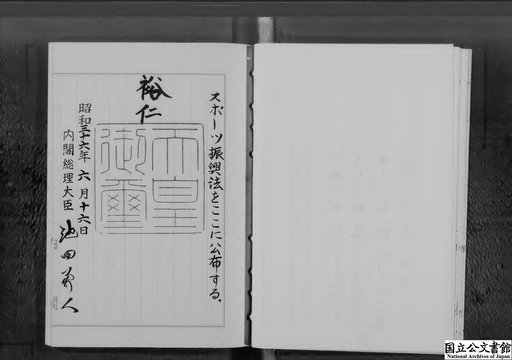 スポーツ振興法をここに公布する。
裕仁
天皇
御璽
昭和三十六年六月十六日
内閣総理大臣 池田勇人
国立公文書館
National Archives of Japan